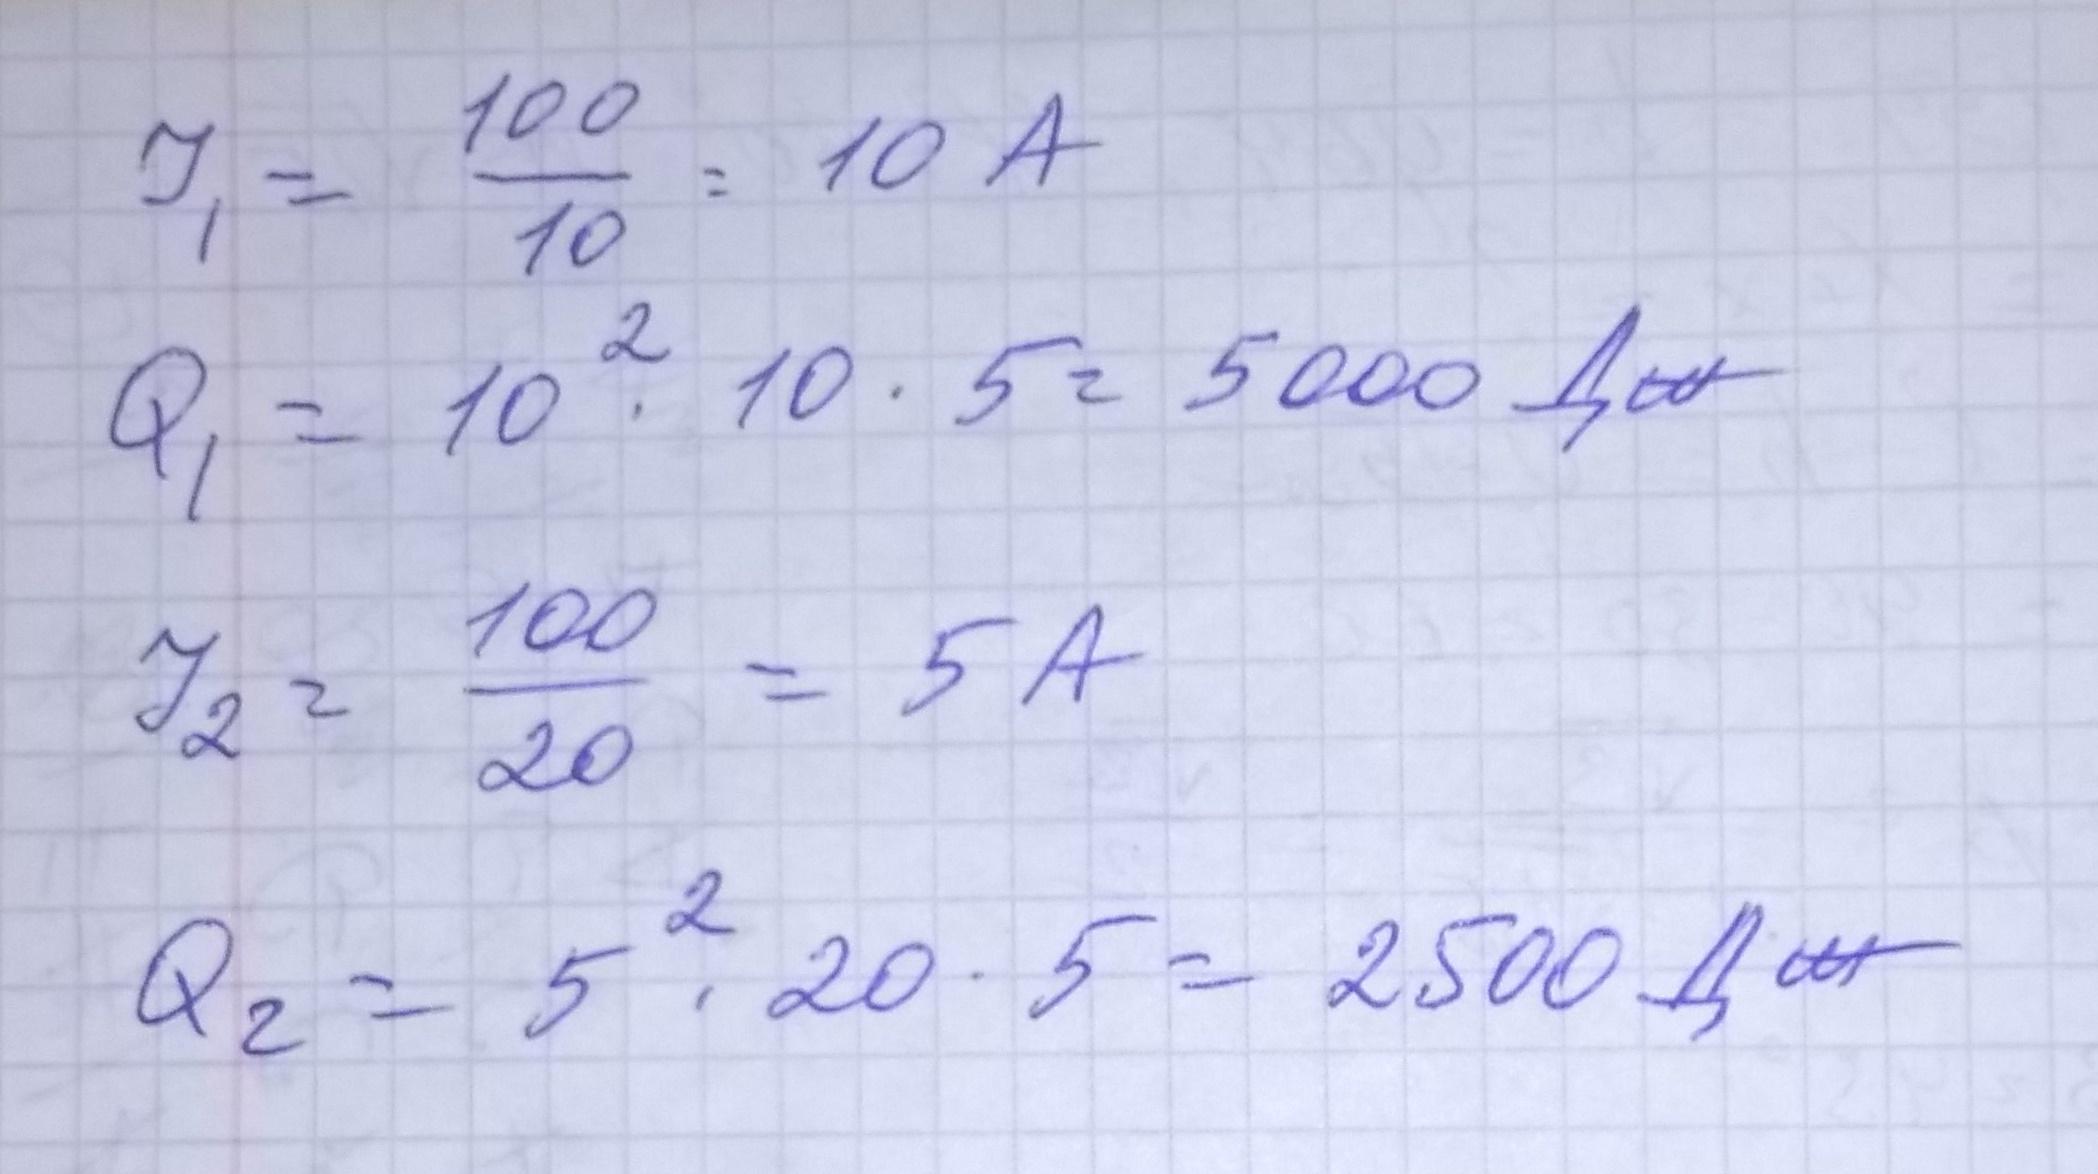 I₁ = 100/10 = 10 А
Q₁ = 10² · 10 · 5 = 5000 Дж
I₂ = 100/20 = 5 А
Q₂ = 5² · 20 · 5 = 2500 Дж